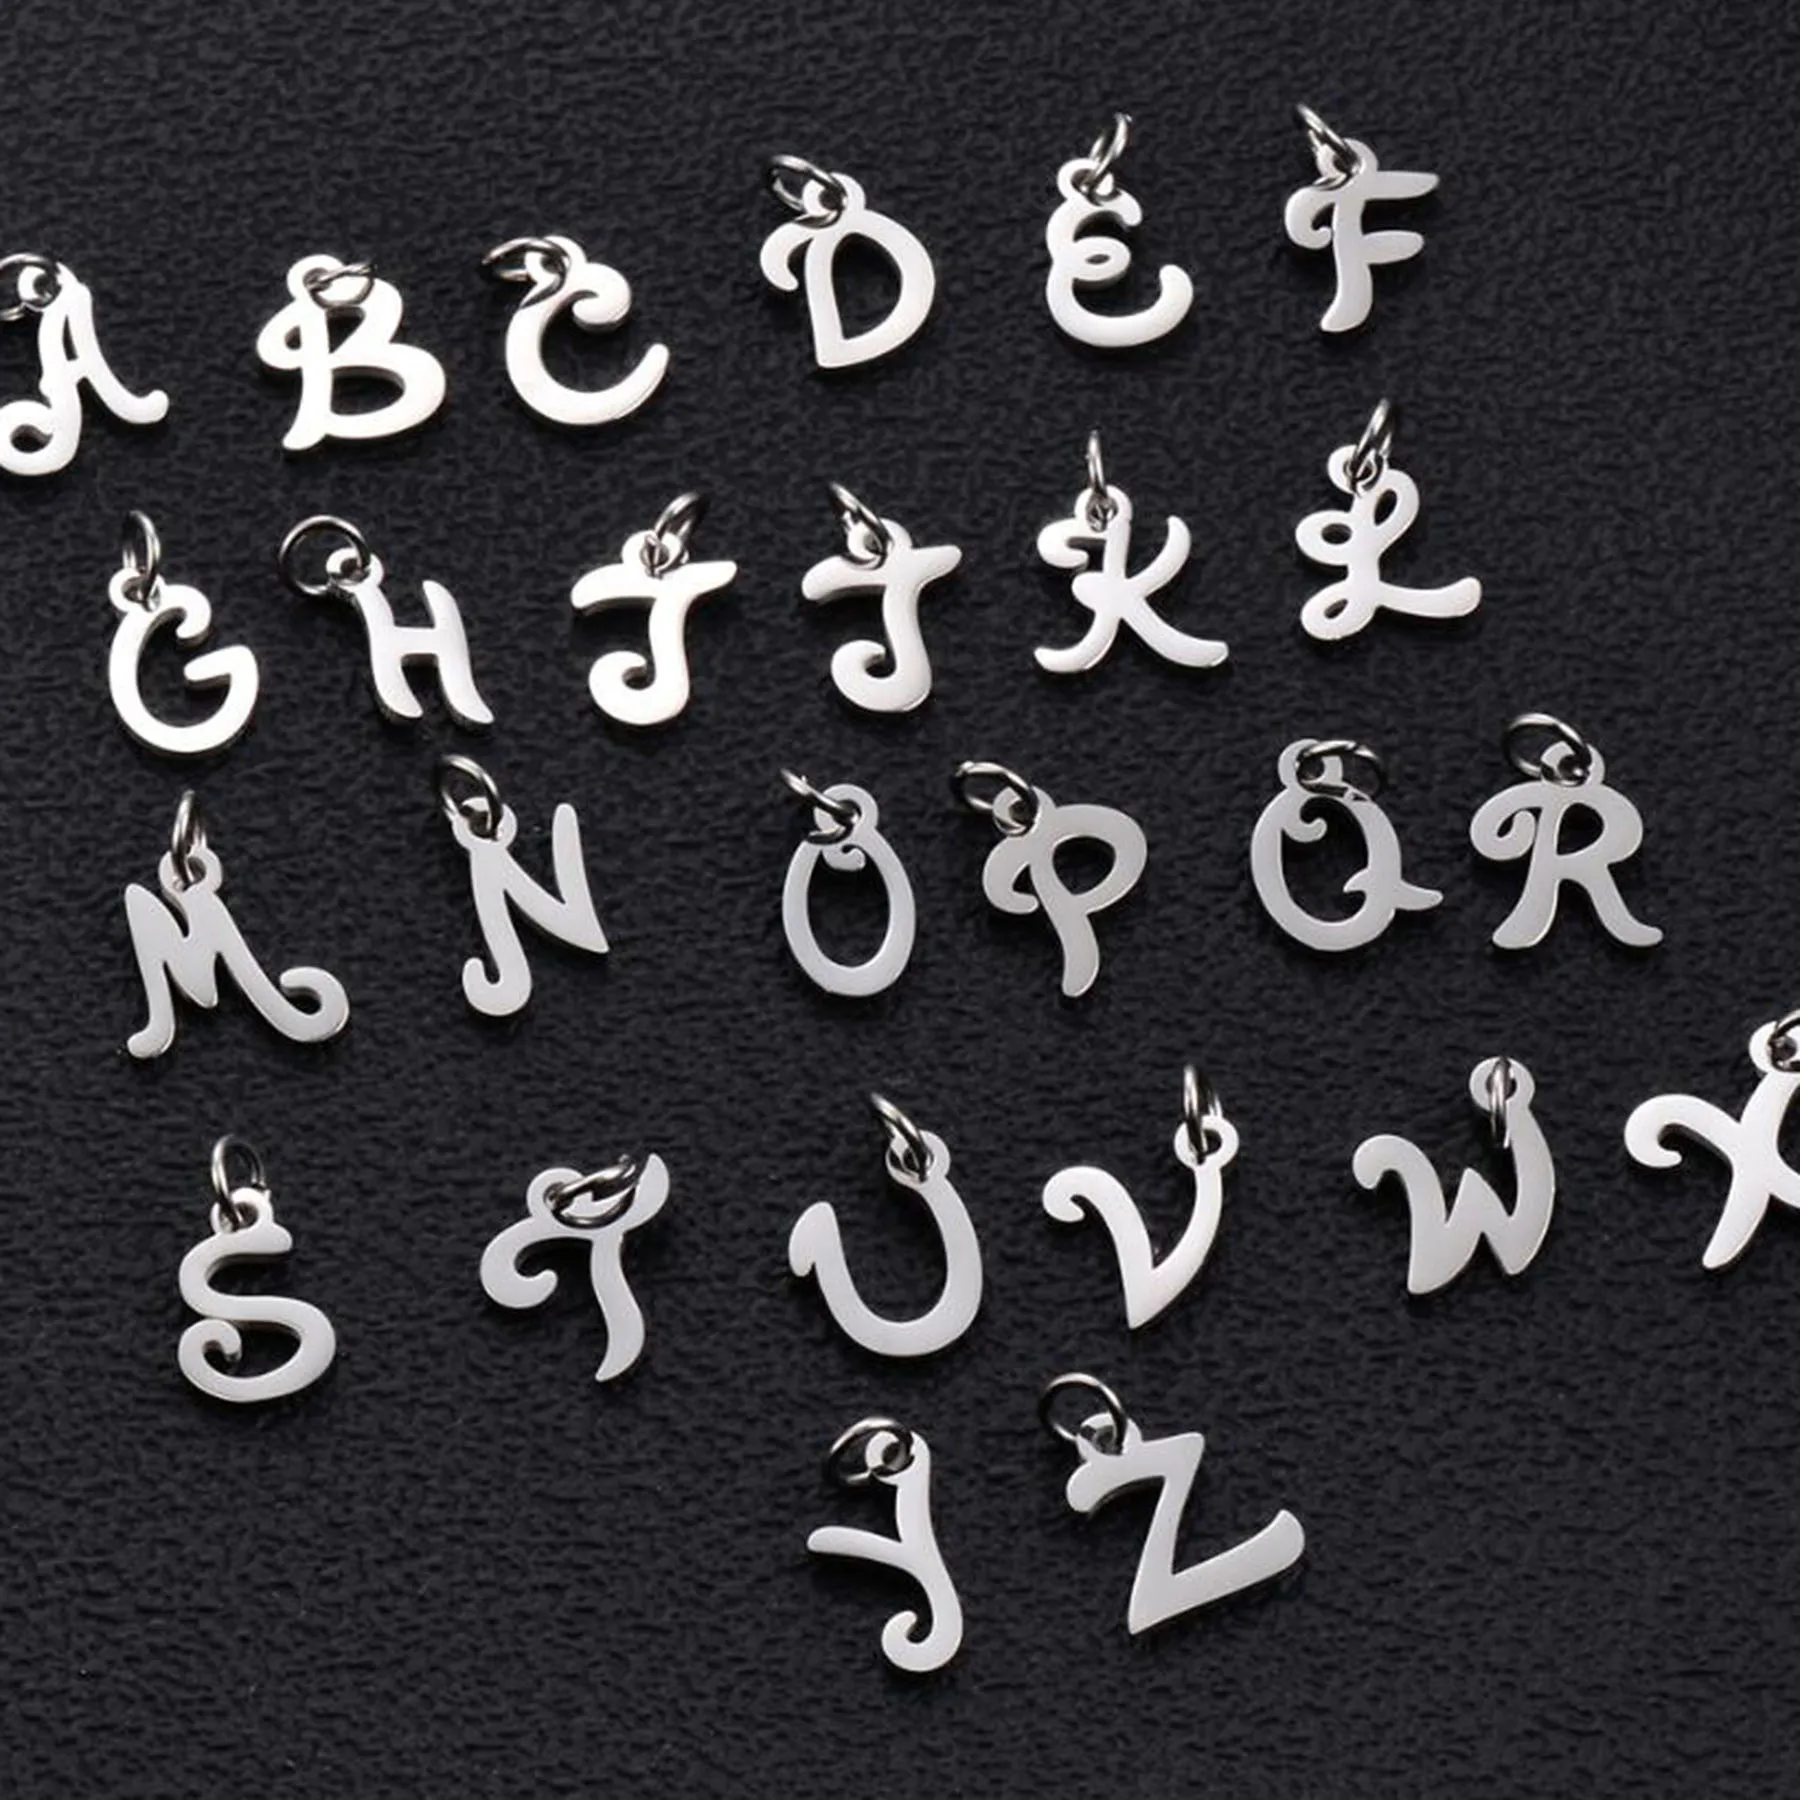 A B C D E F
G H J J K L
M N O P Q R
S T U V W X
Y Z